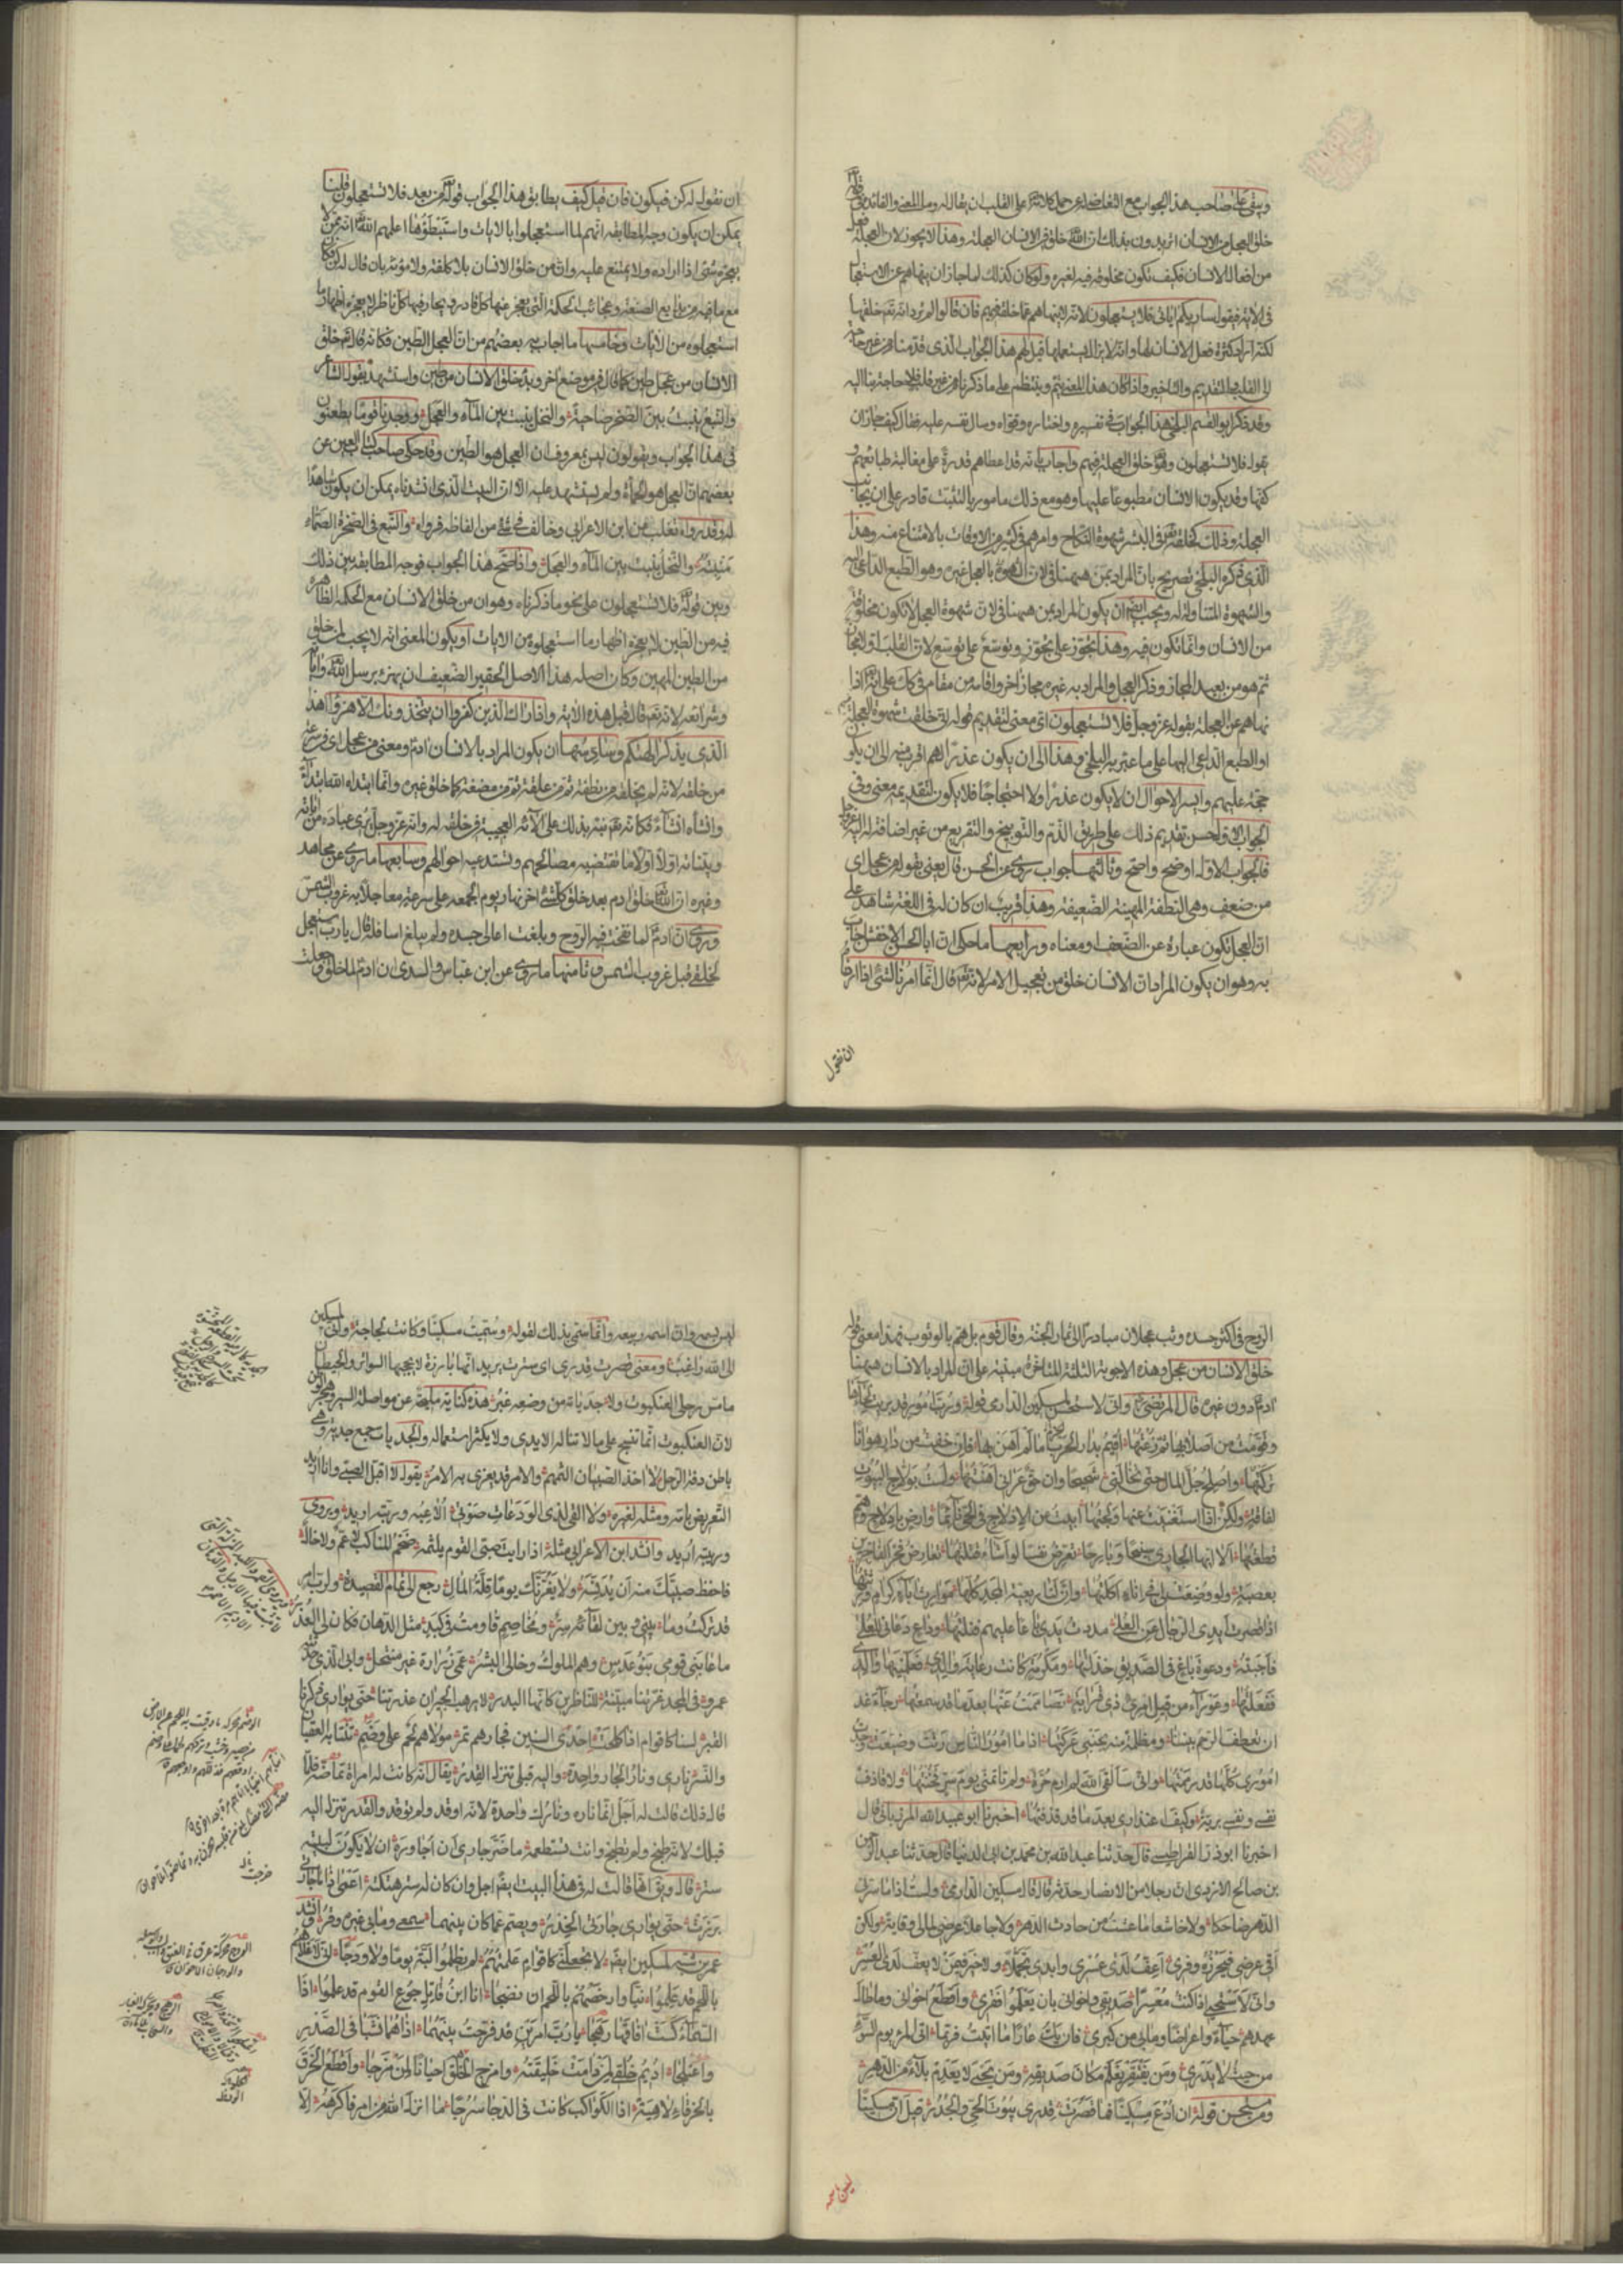 ويبقى على صاحب هذا الجواب مع التغاضي له عن حمل كلامه تعالى على القلب ان يقال له وما المعنى والفائدة في قوله
خلق العجل من الانسان اتريدون بذلك ان الله تعالى خلق في الانسان العجلة وهذا لا يجوز لان العجلة فعل
من افعال الانسان فكيف تكون مخلوقة فيه لغيره ولو كان كذلك لما جاز ان ينهاهم عن الاستعجال
في الاية فيقول ساريكم اياتي فلا تستعجلون لانه لا ينهاهم عما خلقه فيهم فان قالوا لم يرد انه تعالى خلقها
لكنه اراد كثرة فعل الانسان لها وانه لا يزال يستعملها قيل لهم هذا الجواب الذي قدمناه من غير حاجة
الى القلب والتقديم والتاخير واذا كان هذا المعنى يتم وينتظم على ما ذكرناه من غير قلب فلا حاجة بنا اليه
وقد ذكر ابو القسم البلخي هذا الجواب في تفسيره واختاره وقواه وسال نفسه عليه فقال كيف جاز ان
يقول فلا تستعجلون وهو خلق العجلة فيهم واجاب بانه قد اعطاهم قدرة على مغالبة طباعهم و
كفها وقد يكون الانسان مطبوعا عليها وهو مع ذلك مامور بالتثبت قادر على ان يجانب
العجلة وذلك كخلقه في البشر شهوة النكاح وامرهم في كثير من الاوقات بالامتناع منه وهذا
الذي ذكره البلخي تصريح بان المراد بمن ههنا في لان شهوة العجل غيره وهو الطبع الداعي اليه
والشهوة المتناولة له ويجب ايضا ان يكون المراد بمن ههنا في لان شهوة العجل لا تكون مخلوقة
من الانسان وانما تكون فيه وهذا تجوز على تجوز وتوسع على توسع لان القلب اولا مجاز
ثم هو من بعيد المجاز وذكر العجل والمراد به غيره مجاز اخر واقامة من مقام في كذلك على انه اذا
نهاهم عن العجلة بقوله عز وجل فلا تستعجلون اي معنى لتقديم قوله اني خلقت شهوة العجلة
او الطبع الداعي اليها على ما عبر به البلخي وهذا الى ان يكون عذرا لهم اقرب منه الى ان يكون
حجة عليهم وايسر الاحوال ان لا يكون عذرا ولا احتجاجا فلا يكون لتقديمه معنى وفي
الجواب الاول حسن تقديم ذلك على طريق الذم والتوبيخ والتقريع من غير اضافة له اليه عز وجل
فالجواب الاول اوضح واصح وثالثها جواب روي عن الحسن قال يعني بقوله من عجل اي
من ضعف وهي النطفة المهينة الضعيفة وهذا قريب ان كان له في اللغة شاهد على
ان العجل تكون عبارة عن الضعف ومعناه ورابعها ما حكي ان ابا الحسن الاخفش اجاب
به وهو ان يكون المراد ان الانسان خلق من تعجيل الامر لانه تعالى قال انما امرنا لشئ اذا اردناه
ان نقول
ان نقول له كن فيكون فان قيل كيف يطابق هذا الجواب قوله من بعد فلا تستعجلون قلنا
يمكن ان يكون وجه المطابقة انهم لما استعجلوا بالايات واستبطؤها اعلمهم الله تعالى انه ممن لا
يعجزه شئ اذا اراده ولا يمتنع عليه وان من خلق الانسان بلا كلفة ولا مؤنة بان قال له كن فكان
مع ما فيه من بدايع الصنعة وعجائب الحكمة التي يعجز عنها كل قادر ويحار فيها كل ناظر لا يعجزه اظهار ما
استعجلوه من الايات وخامسها ما اجاب به بعضهم من ان العجل الطين فكانه قال تعالى خلق
الانسان من عجل طين كما قال في موضع اخر وبدا خلق الانسان من طين واستشهد بقول الشاعر
والنبع ينبت بين الصخر ضاحية والنخل ينبت بين الماء والعجل ووجدنا قوما يطعنون
في هذا الجواب ويقولون ليس بمعروف ان العجل هو الطين وقد حكى صاحب كتاب العين عن
بعضهم ان العجل هو الحماة ولم يستشهد عليه الا ان البيت الذي انشدناه يمكن ان يكون شاهدا
له وقد رواه ثعلب عن ابن الاعرابي وخالف في شئ من الفاظه فرواه والنبع في الصخرة الصماء
منبته والنخل ينبت بين الماء والعجل واذا صح هذا الجواب فوجه المطابقة بين ذلك
وبين قوله تعالى فلا تستعجلون على نحو ما ذكرناه وهو ان من خلق الانسان مع الحكمة الظاهرة
فيه من الطين لا يعجزه اظهار ما استعجلوه من الايات او يكون المعنى انه لا يجب لمن خلق
من الطين المهين وكان اصله هذا الاصل الحقير الضعيف ان يهزء برسل الله واياته
وشرائعه لانه تعالى قال قبل هذه الاية واذا راك الذين كفروا ان يتخذونك الا هزوا اهذا
الذي يذكر الهتكم وسادسها ان يكون المراد بالانسان ادم ومعنى من عجل اي في سرعة
من خلقه لانه لم يخلقه من نطفة ثم من علقة ثم من مضغة كما خلق غيره وانما ابتداه الله ابتداء
وانشاه انشاء فكانه تعالى نبه بذلك على الاية العجيبة في خلقه له وانه عز وجل يري عباده من اياته
وبيناته اولا اولا ما تقتضيه مصالحهم وتستدعيه احوالهم وسابعها ما روي عن مجاهد
وغيره ان الله تعالى خلق ادم بعد خلق كل شئ اخر نهار يوم الجمعة على سرعة معاجلا به غروب الشمس
وروي ان ادم لما نفخت فيه الروح وبلغت اعالي جسده ولم يبلغ اسافله قال يا رب استعجل
بخلقي قبل غروب الشمس وثامنها ما روي عن ابن عباس والسدي ان ادم لما خلق وجعلت
الروح في اكثر جسده وثب عجلان مبادرا الى ثمار الجنة وقال قوم بل هم بالوثوب فهذا معنى قوله
خلق الانسان من عجل وهذه الاجوبة الثلثة المتاخرة مبنية على ان المراد بالانسان ههنا
ادم دون غيره قال المرتضى واني لاستحسن لمسكين الدارمي قوله ورب امور قد بريت لحاءها
وقومت من اصلابها ثم زعتها اقيم بدار الحرب ما لم اهن بها فان خفت من دار هوانا
تركتها واصلح جل المال حتى تخالني شحيحا وان حق عراني اهنتها ولست بولاج البيوت
لفاقة ولكن اذا استغنيت عنها ولجتها ابيت عن الادلاج في الحي نائما وارض بادلاج وهم
قطعتها الا ايها الجاري سنيحا وبارحا تعرض نفسا لو اشاء قتلتها تعارض فخر الفاخرين
بعصبة ولو وضعت لي في اناء اكلتها وان لنا ربعية المجد كلها مواريث اباء كرام ورثتها
اذا قصرت ايدي الرجال عن العلى مددت يدي باعا عليهم فنلتها وداع دعاني للعلى
فاجبته ودعوة داع في الصديق خذلتها ومكرمة كانت رعاية والدي فعلمنيها والدي
ففعلتها وعوراء من قيل امرئ ذي قرابة تصاممت عنها بعد ما قد سمعتها رجاة غد
ان يعطف الرحم بيننا ومظلمة منه بجنبي عركتها اذا ما امور الناس رثت وضيعت وجدت
اموري كلها قد رممتها واني سالقى الله لم ارم حرة ولم تاتمني يوم سر فخنتها ولا قاذف
نفسي ونفسي برية وكيف اعتذاري بعد ما قد قذفتها اخبرنا ابو عبيد الله المرزباني قال
اخبرنا ابو ذر القراطيسي قال حدثنا عبد الله بن محمد بن ابي الدنيا قال حدثنا عبد الرحمن
بن صالح الازدي ان رجلا من الانصار حدثه قال قال مسكين الدارمي ولست اذا ما سرني
الدهر ضاحكا ولا خاشعا ما عشت من حادث الدهر ولا جاعلا عرضي لمالي وقاية ولكن
اقي عرضي فيحرزه وفري اعف لدى عسري وابدي تجملا ولا خير فيمن لا يعف لدى العسر
واني لاستحيي اذا كنت معسرا صديقي واخواني بان يعلموا فقري واقطع اخواني وما حال
عهدهم حياء واعراضا وما بي من كبر فان يك عارا ما اتيت فربما اتى المرء يوم السوء
من حيث لا يدري ومن يفتقر يعلم مكان صديقه ومن يحي لا يعدم بلاء من الدهر
ومن مستحسن قوله ان ادع مسكينا فما قصرت قدري بيوت الحي والجدر قيل ان مسكينا
ليس اسمه
ليس باسمه وان اسمه ربيعة وانما سمي بذلك لقوله وسميت مسكينا وكانت لجاجة واني لمسكين
الى الله راغب ومعنى قصرت قدري اي سترت يريد انها بارزة لا يحجبها السواتر والحيطان
ما مس رحلي العنكبوت ولا جدياته من وضعه غبر هذه كناية مليحة عن مواصلة السير وهجر الوطن
لان العنكبوت انما تنسج على ما لا تناله الايدي ولا يكثر استعماله والجديات جمع جدية وهي
باطن دفة الرحل لا اخذ الصبيان الثمهم والامر قد يغرى به الامر يقول لا اقبل الصبي وانا اريد
التعريض بامه ومثله لغيره ولا القي لذي الودعات صوتي الاعبه وربته اريد ويروى
وريبته اريد وانشد ابن الاعرابي مثله اذا رايت صبي القوم يلثمه ضخم المناكب لا عم ولا خال
فاحفظ صبيك منه ان يدنسه ولا يغرنك يوما قلة المال رجع الى تمام القصيدة ولرب امر
قد تركت وما بيني وبين لقائه ستر ومخاصم قاومت في كبد مثل الدهان فكان لي العذر
ما عابني قومي بنو عدس وهم الملوك وخالي البشر عمي زرارة غير منتحل وابي الذي حدثته
عمرو في المجد غرتنا مبينة للناظرين كانها البدر لا يرهب الجيران غدرتنا حتى يواري ذكرنا
القبر لسنا كاقوام اذا كلحت احدى السنين فجارهم تمر مولاهم لحم على وضم تنتابه العقبان
والنسر ناري ونار الجار واحدة واليه قبلي تنزل القدر يقال انه كانت له امراة تماضه فلما
قال ذلك قالت له اجل انما ناره ونارك واحدة لانه اوقد ولم توقد والقدر تنزل اليه
قبلك لانه طبخ ولم تطبخ وانت تستطعمه ما ضر جارا لي اجاوره ان لا يكون لبيته
ستر قال ويق انها قالت له في هذا البيت ايضا اجل وان كان له ستر هتكته اعمى اذا ما جارتي
برزت حتى يواري جارتي الخدر ويصم عما كان بينهما سمعي وما بي غيره وقر وانشد
عمر بن شبة لمسكين ايضا لا تجعلني كاقوام علمتهم لم يظلموا لبة يوما ولا ودجا اني لاغلاهم
باللحم قد علموا نيا وارخصهم باللحم ان نضجا انا ابن قاتل جوع القوم قد علموا اذا
السماء كست افاقها رهجا يا رب امرين قد فرجت بينهما اذا هما نشبا في الصدر
واعتلجا اديم خلقي لمن دامت خليقته وامزج الخلق احيانا لمن مزجا واقطع الخرق
بالخرقاء لاهية اذا الكواكب كانت في الدجا سرجا ما انزل الله من امر فاكرهه الا